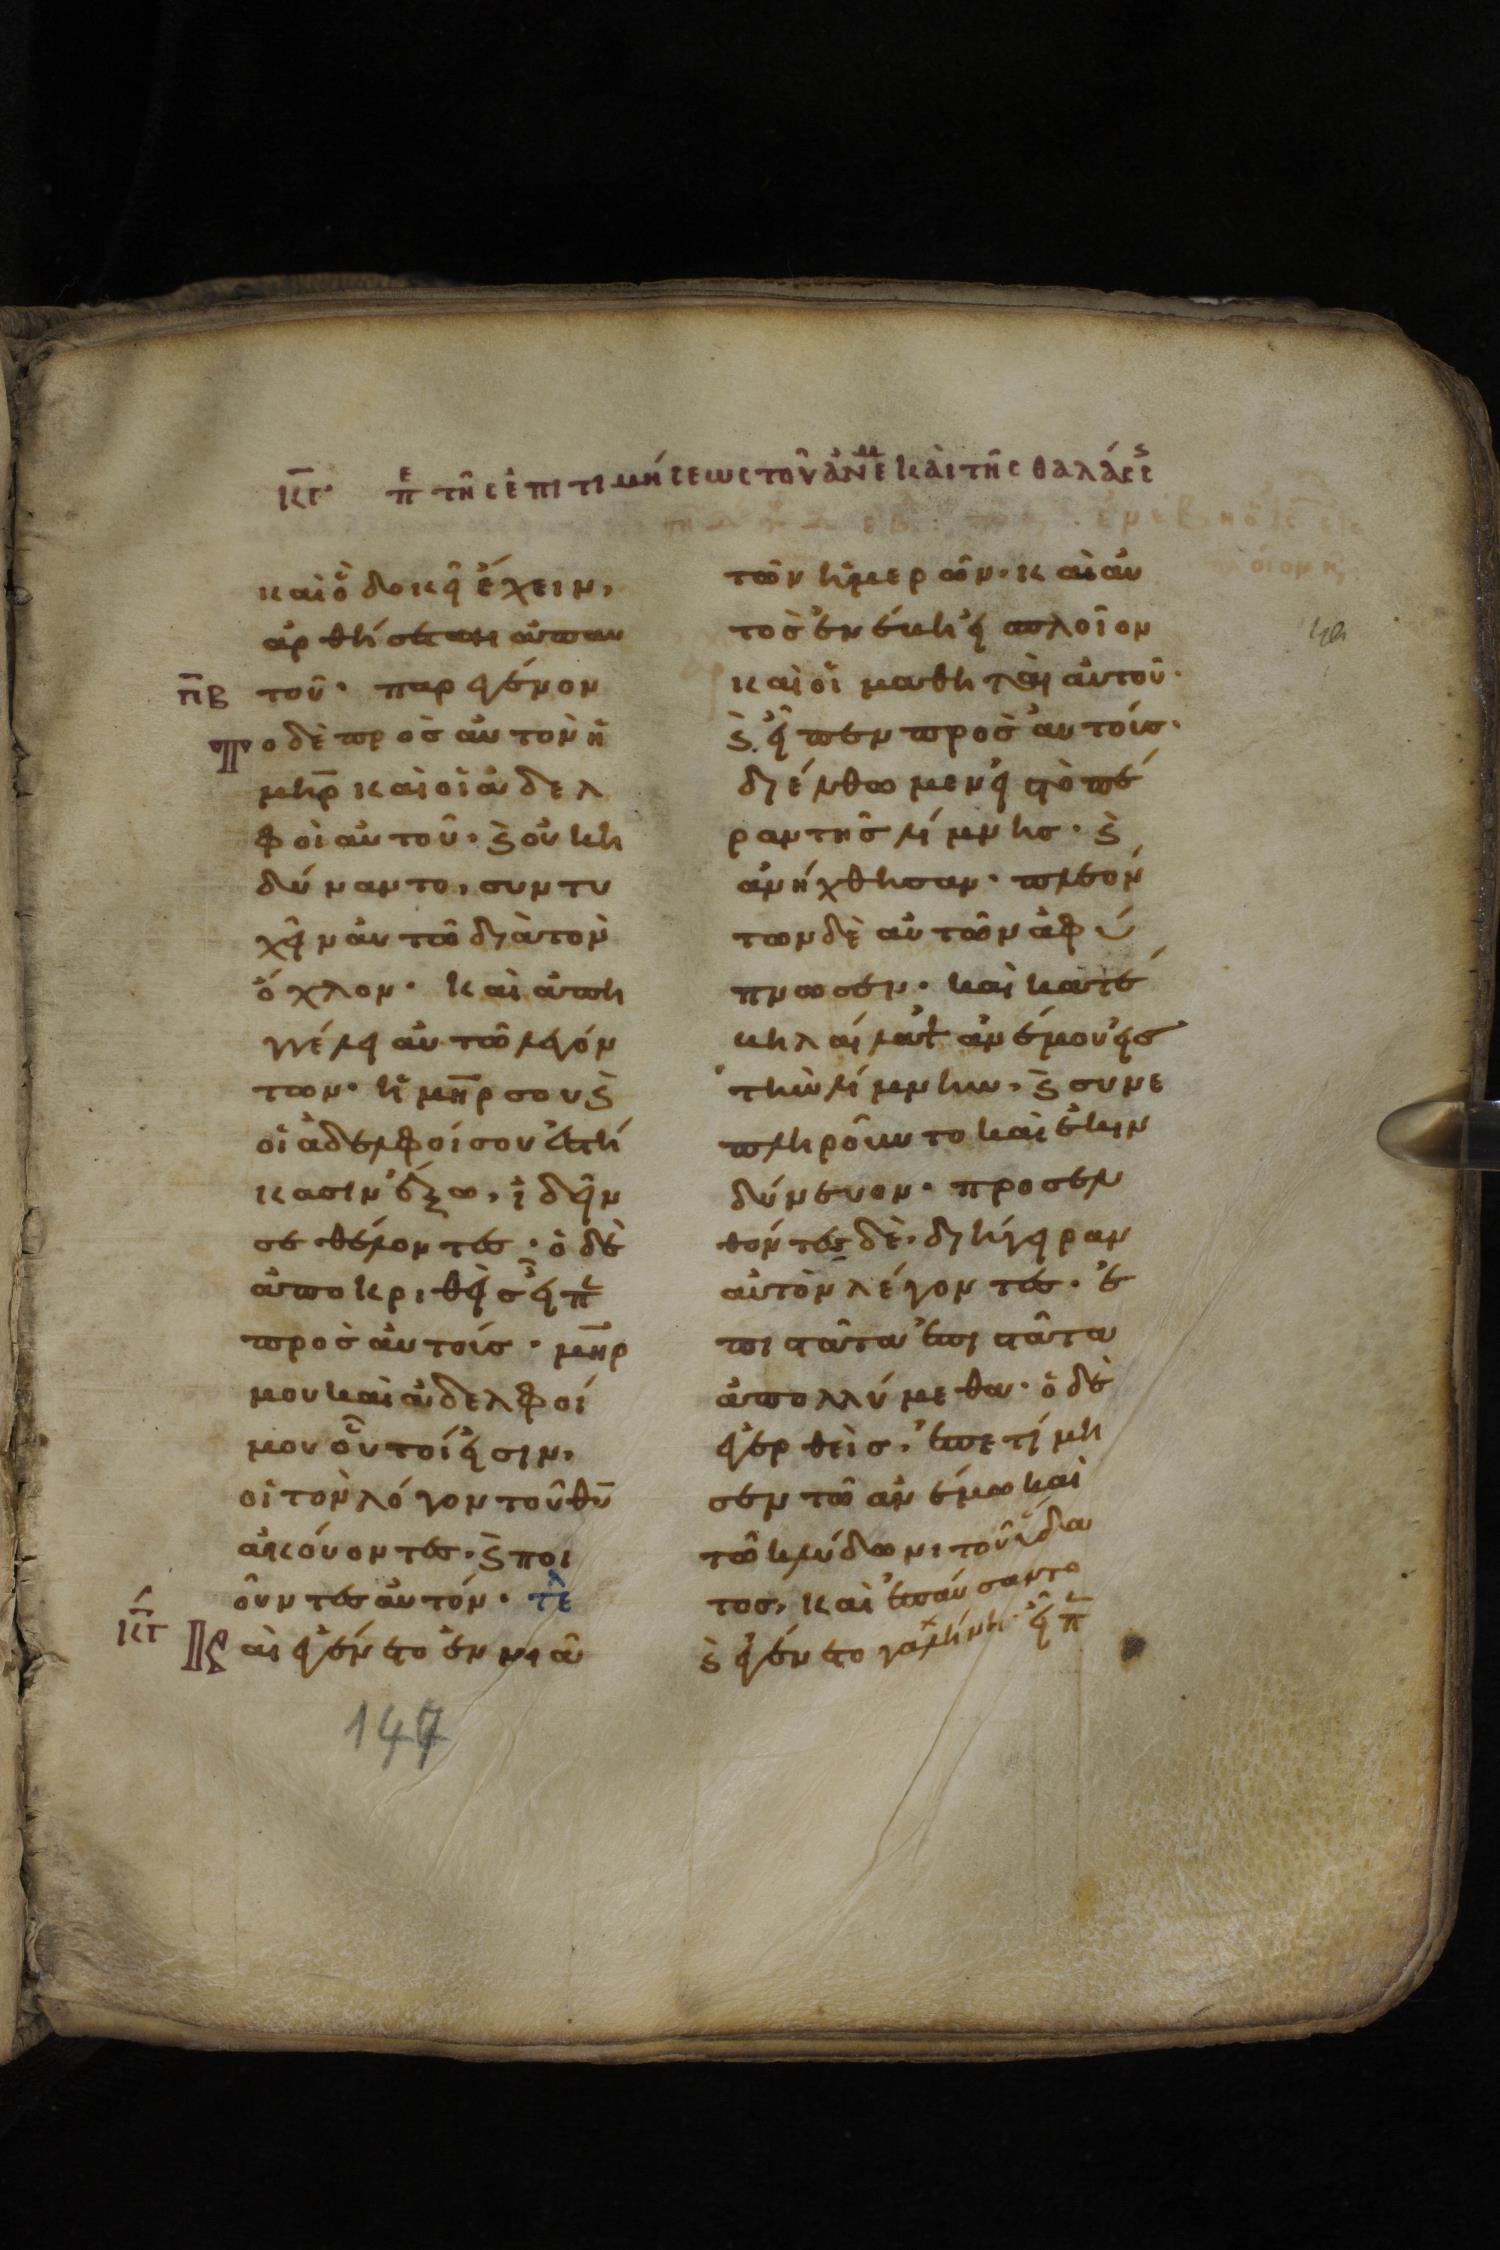 κγ πε τῆς ἐπιτιμήσεως τοῦ ἀνεμ καὶ τῆς θαλάσς
καὶ ὃ δοκεῖ ἔχειν,
ἀρθήσεται ἀπ αυ
πβ τοῦ· παρεγένον
το δὲ πρὸς αὐτὸν ἡ
μηρ καὶ οἱ ἀδελ
φοὶ αὐτοῦ· ϗ οὐκ η
δύναντο, συντυ
χεῖν αὐτῶ διὰ τὸν
ὄχλον· καὶ ἀπη
γγέλει αὐτῶ λεγόν
των· ἡ μηρ σου ϗ
οἱ ἀδελφοί σου ἑστή
κασιν ἔξω, ἰδεῖν
σε θέλοντες· ὁ δὲ
ἀποκριθεὶς εἶπ
πρὸς αὐτοίς· μηρ
μου καὶ ἀδελφοί
μου οὗτοί εἰσιν,
οἱ τὸν λόγον τοῦ θυ
ἀκούοντες· ϗ ποι
οῦντες αὐτόν· τε
κγ Καὶ ἐγένετο ἐν μιᾶ
τῶν ἡμερῶν· καὶ αὐ
τὸς ἐνέβη εἰ πλοῖον
καὶ οἱ μαθηταὶ αὐτοῦ·
ϗ εἶπεν πρὸς αὐτοίς·
διέλθωμεν εἰ τὸ πέ
ραν τῆς λίμνης· ϗ
ἀνήχθησαν· πλεόν
των δὲ αὐτῶν ἀφύ
πνωσεν· καὶ κατέ
βη λαίλαψ ἀνέμου εἰς
τὴν λίμνην, ϗ συνε
πληροῦντο καὶ ἐκιν
δύνευον· προσελ
θόντες δὲ, διήγειραν
αὐτὸν λέγοντες· ἐ
πιστάτα ἐπιστάτα
ἀπολλύμεθα· ὁ δὲ
ἐγερθεὶς, ἐπετίμη
σεν τῶ ἀνέμω καὶ
τῶ κλύδωνι τοῦ ὕδα
τος, καὶ ἐπαύσαντο
ϗ ἐγένετο γαλήνη· εἶπ
147